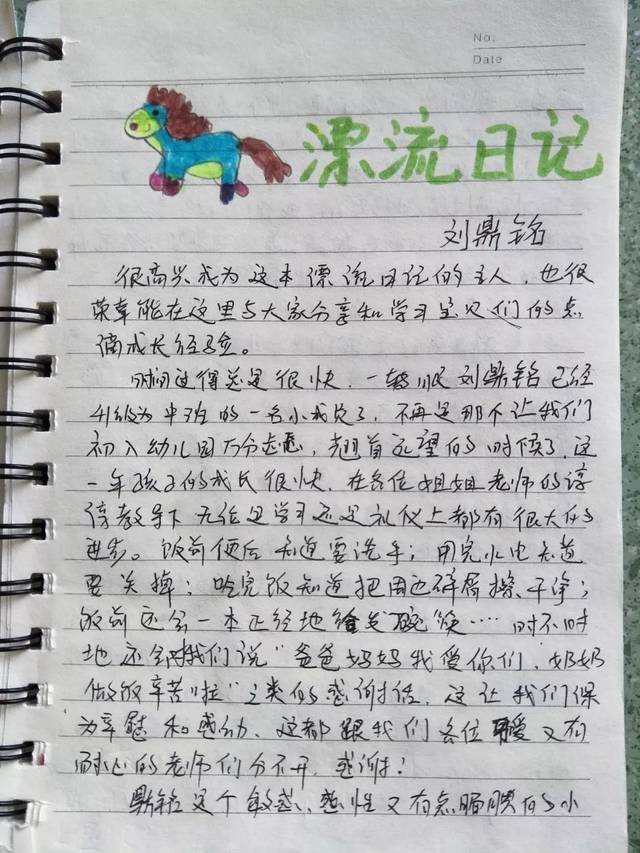 No.
Date
漂流日记
刘鼎铭
很高兴成为这本漂流日记的主人，也很
荣幸能在这里与大家分享和学习宝贝们的点
滴成长经验。
时间过得总是很快，一转眼刘鼎铭已经
升级为中班的一名小成员了，不再是那个让我们
初入幼儿园万分焦虑，翘首远望的时候了，这
一年孩子的成长很快，在各位姐姐老师的谆
谆教导下无论是学习还是礼仪上都有很大的
进步。饭前便后知道要洗手；用完水电知道
要关掉；吃完饭知道把周边碎屑擦干净；
饭前还会一本正经地给发碗筷……时不时
地还会对我们说“爸爸妈妈我爱你们，奶奶
做饭辛苦啦”之类的感谢话，这让我们深
为辛慰和感动，这都跟我们各位可爱又有
耐心的老师们分不开，感谢！
鼎铭是个敏感、感性又有点腼腆的小